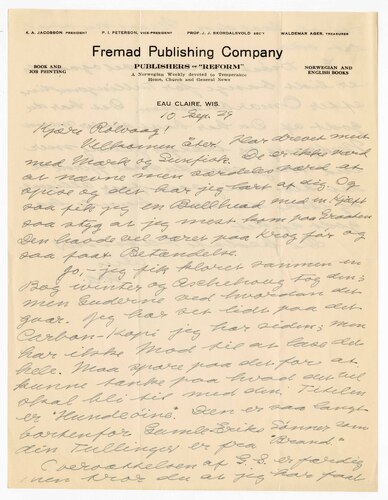 K. A. JACOBSON, PRESIDENT P. I. PETERSON, VICE-PRESIDENT PROF. J. J. SKORDALSVOLD, SEC'Y WALDEMAR AGER, TREASURER
Fremad Publishing Company
BOOK AND JOB PRINTING
PUBLISHERS OF "REFORM"
A Norwegian Weekly devoted to Temperance
Home, Church and General News
NORWEGIAN AND ENGLISH BOOKS
EAU CLAIRE, WIS.
10 Sep. 29
Kjære Rölvaag!
Velkommen åter. Har drevet mest
med Mark og Sunfisk. De er ikke værd
at nævne men særdeles værd at
spise og det har jeg lært af dig. Og
saa fik jeg en Bullhead med en Kjæft
saa styg at jeg mest kom paa Graaden
Den havde vel været paa Krog før og
saa faat Betændelse.
Jo, – jeg fik kloret sammen en
Bog i vinter og Aschehoug tog den;
men Guderne ved hvordan det
gaar. Jeg har set lidt paa det
Carbon-Kopi jeg har siden; men
har ikke Mod til at læse det
hele. Maa spare paa det for at
kunne tænke paa hvad det vel
skal bli til med den. Titelen
er "Hundeöine". Den er saa langt
bortenfor Gamle Eriks Sönner som
din Tullinger er fra "Brand."
Oversættelsen af G. S. er færdig
men tror du at jeg har faat